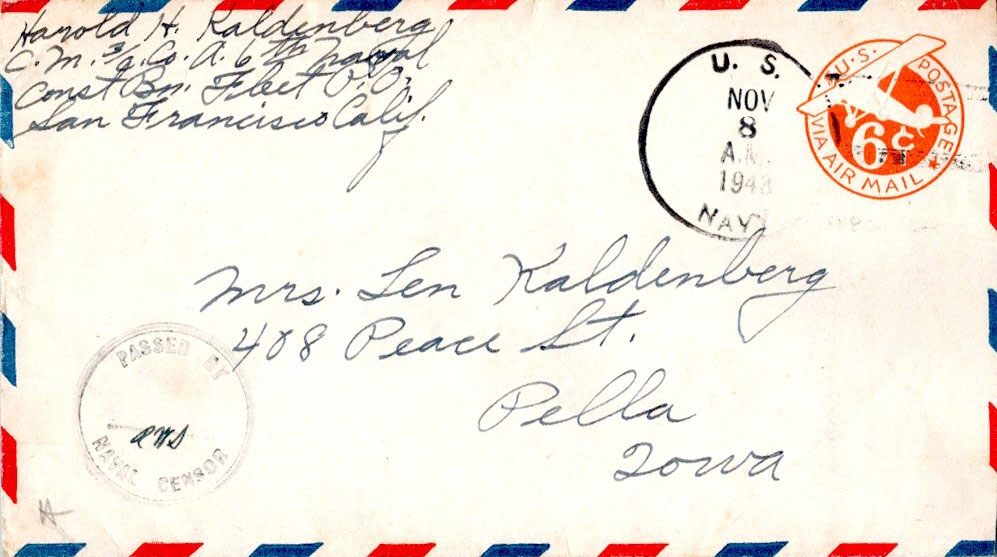 Harold H. Kaldenberg
C. M. 3/c. Co. A. 6th naval
Const Bn. Fleet P.O.
San Francisco Calif.
U. S.
NOV
8
A.M.
194
NAVY
U.S. POSTAGE
6¢
VIA AIR MAIL
Mrs. Len Kaldenberg
408 Peace St.
Pella
Iowa
PASSED BY
NAVAL CENSOR